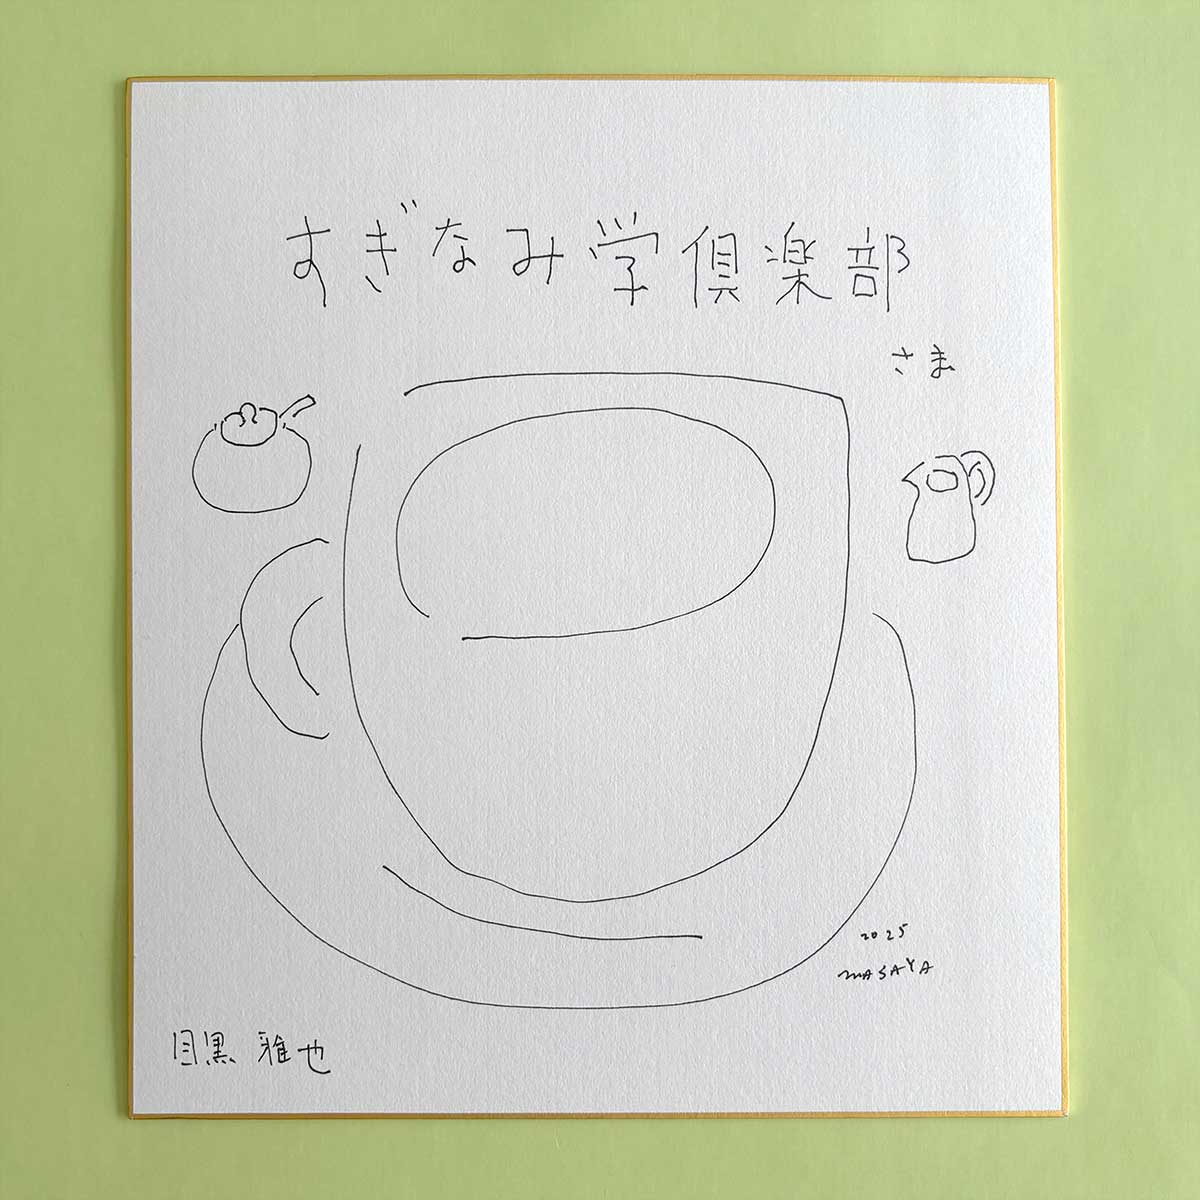 すぎなみ学倶楽部
さま
2025
MASAYA
目黒 雅也